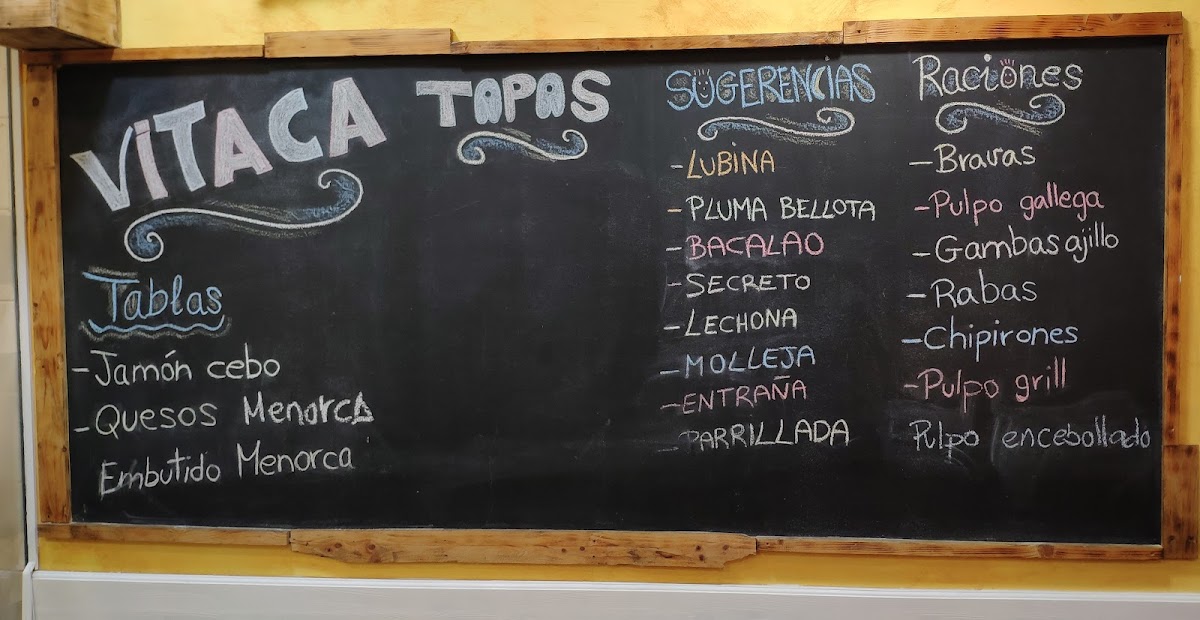 VITACA
Tablas
- Jamón cebo
- Quesos Menorca
Embutido Menorca
TAPAS
SUGERENCIAS
- LUBINA
- PLUMA BELLOTA
- BACALAO
- SECRETO
- LECHONA
- MOLLEJA
- ENTRAÑA
- PARRILLADA
Raciones
- Bravas
- Pulpo gallega
- Gambas ajillo
- Rabas
- Chipirones
- Pulpo grill
Pulpo encebollado